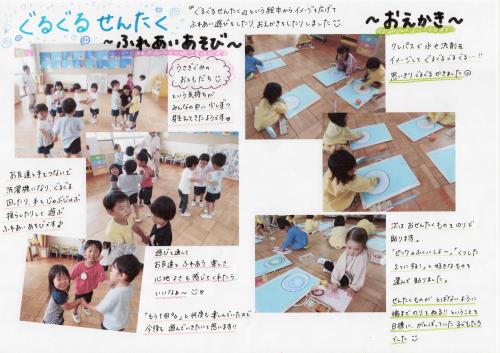 ぐるぐる せんたく
～ふれあいあそび～
『ぐるぐるせんたく』という絵本からイメージを広げて
ふれあい遊びをしたり、おえかきをしたりしました
～おえかき～
うさぎぐみの
おともだち
という気持ちが
みんなの中に少しずつ
芽生えてきたようです
お友達と手をつないで
洗濯機になり、ぐるぐる
回ったり、手をじゃぶじゃぶ
揺らしたりして遊ぶ
ふれあい遊びです♪
遊びを通して
お友達とふれあう楽しさ
心地よさを感じてくれたら
いいなぁ～
「もう1回!!」と何度も楽しんでいたので
今後も遊んでいきたいと思います!!
クレパスで水や洗剤を
イメージしてぐるぐるぐるぐる…!!
思いきりぐるぐるかきました
次はおせんたくものをのりで
貼ります。
「ピンクのふくにしよー」「くつした
ふたつだね!」と好きなものを
選んで貼りました。
せんたくものがとばないように
端までのりをぬる!!ということを
目標に、がんばっていた子どもたち
でした